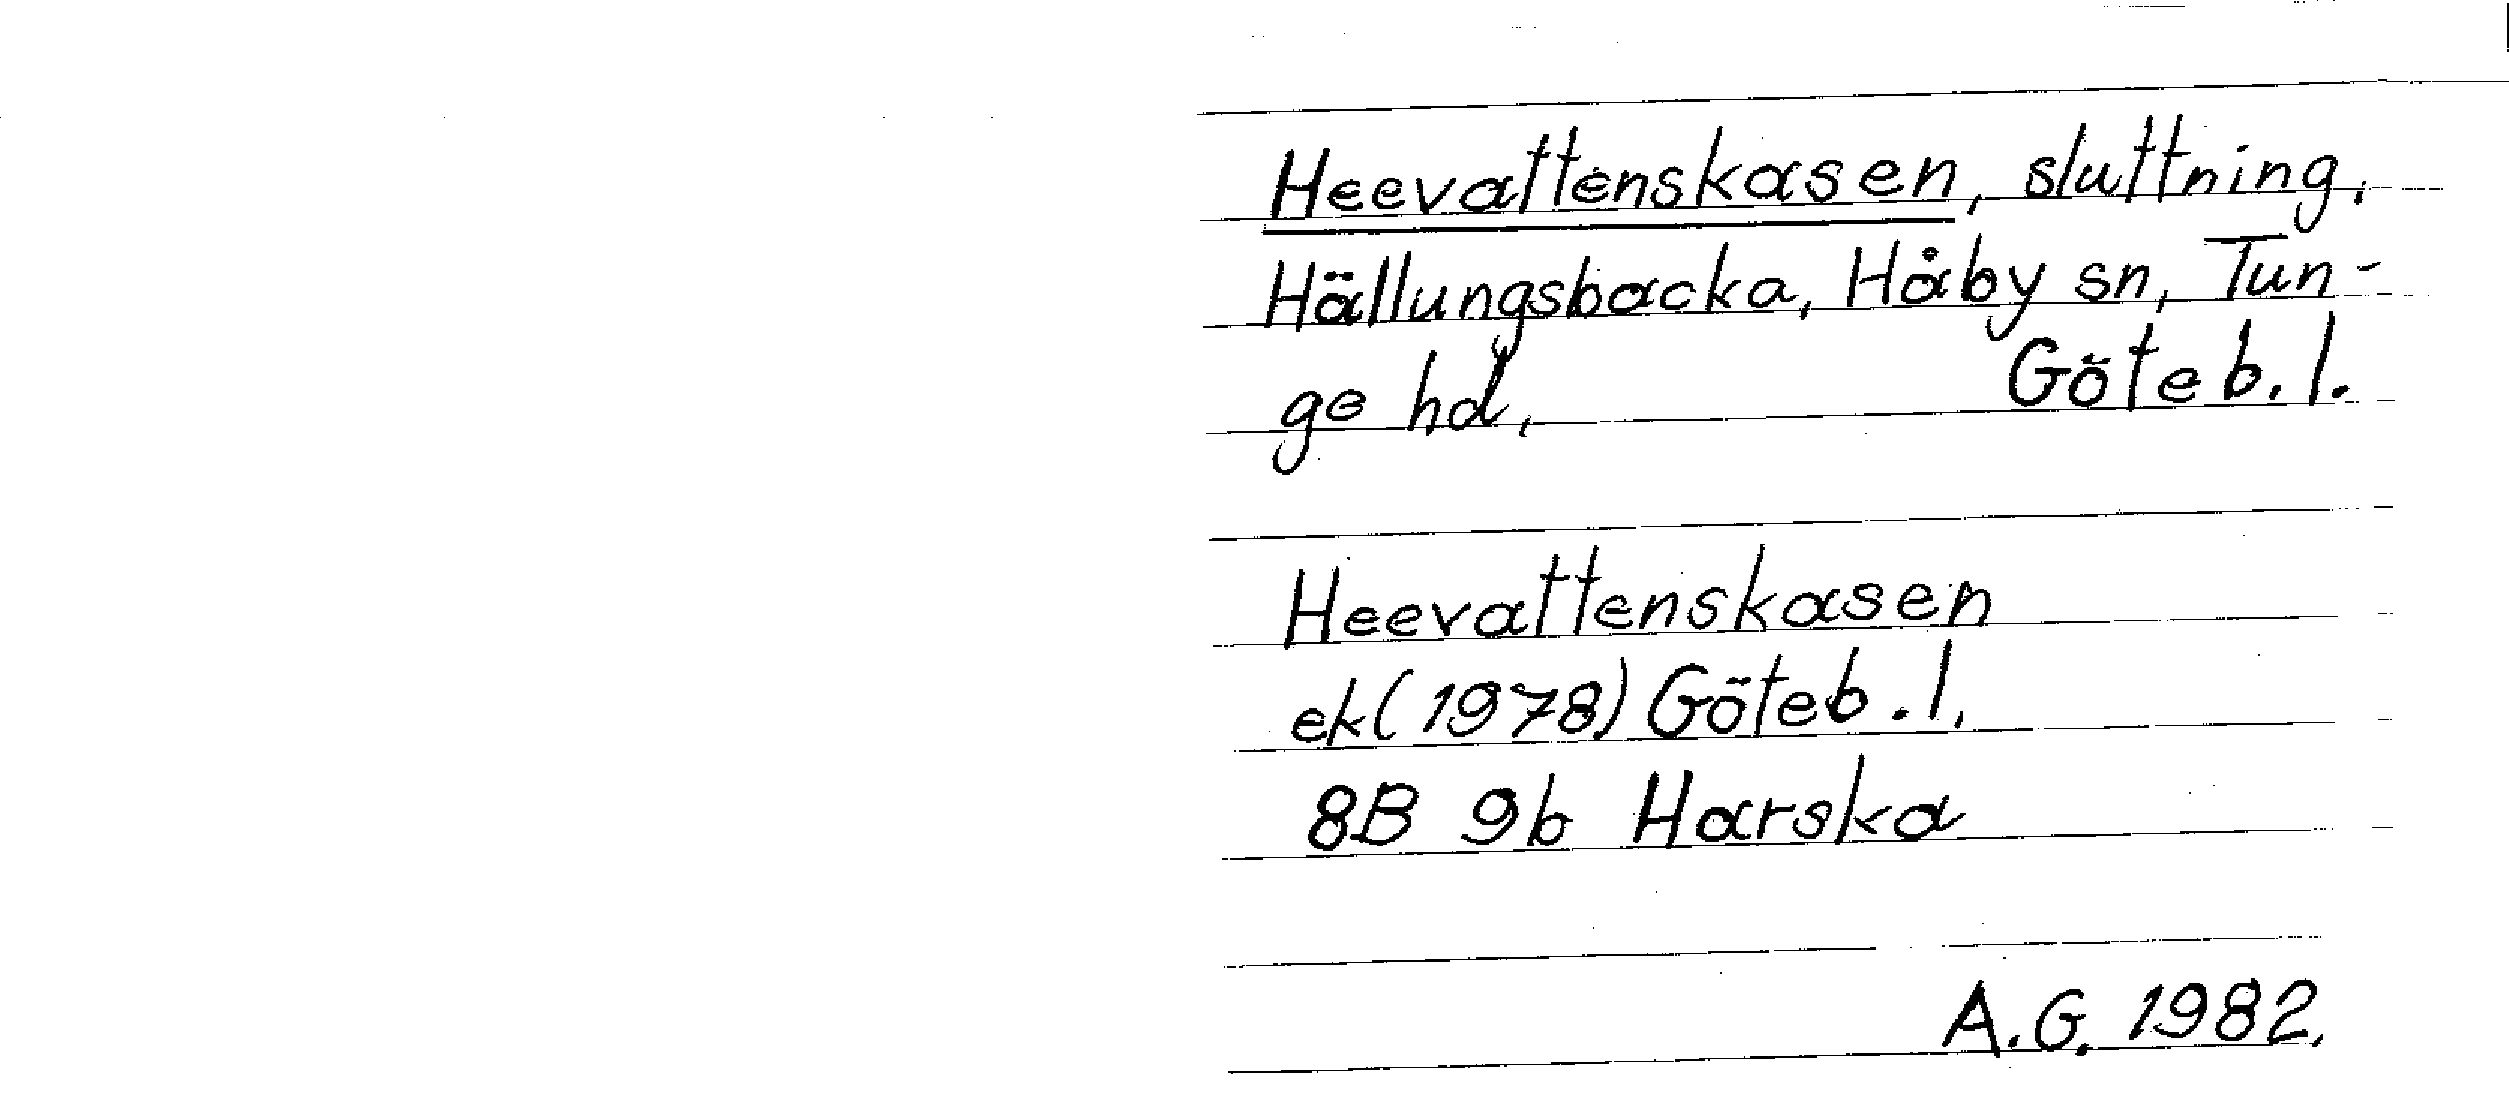 Heevattenskasen, sluttning,
Hällungsbacka, Håby sn, Tun-
ge hd, Göteb. l.
Heevattenskasen
ek (1978) Göteb. l.
8B 9b Harska
A.G. 1982.